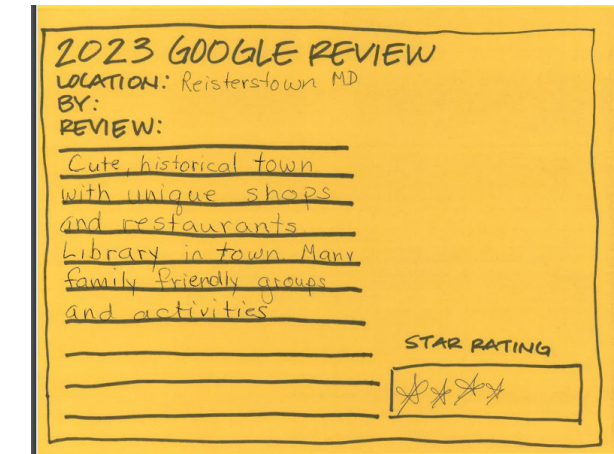 2023 GOOGLE REVIEW
LOCATION: Reisterstown MD
BY:
REVIEW:
Cute, historical town
with unique shops
and restaurants
Library in town. Many
family friendly groups
and activities
STAR RATING